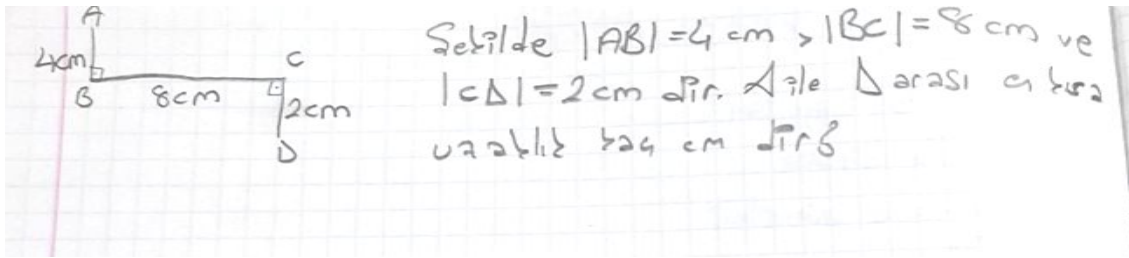 A
4cm
B
8cm
C
2cm
D
Şekilde |AB|=4 cm, |BC|=8 cm ve
|CD|=2cm dir. A ile D arası en kısa
uzaklık kaç cm dir?